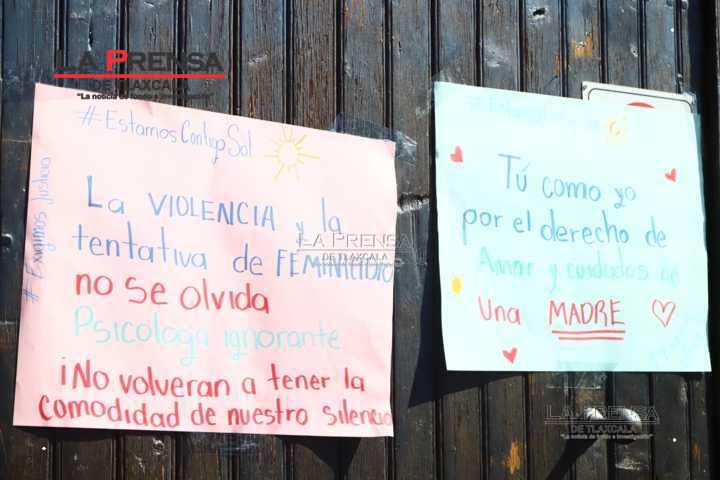 LA PRENSA
DE TLAXCALA
"La noticia de fondo e investigación"
#-EstamosContigoSol
# Exigimos Justicia
LA VIOLENCIA y la
tentativa de FEMINICIDIO
no SE olvida
Psicologa ignorante
¡No volveran a tener la
comodidad de nuestro silencio
Tú como yo
por el derecho de
Amor y cuidados de
Una MADRE
LA PRENSA
DE TLAXCALA
LA PRENSA
DE TLAXCALA
"La noticia de fondo e investigación"